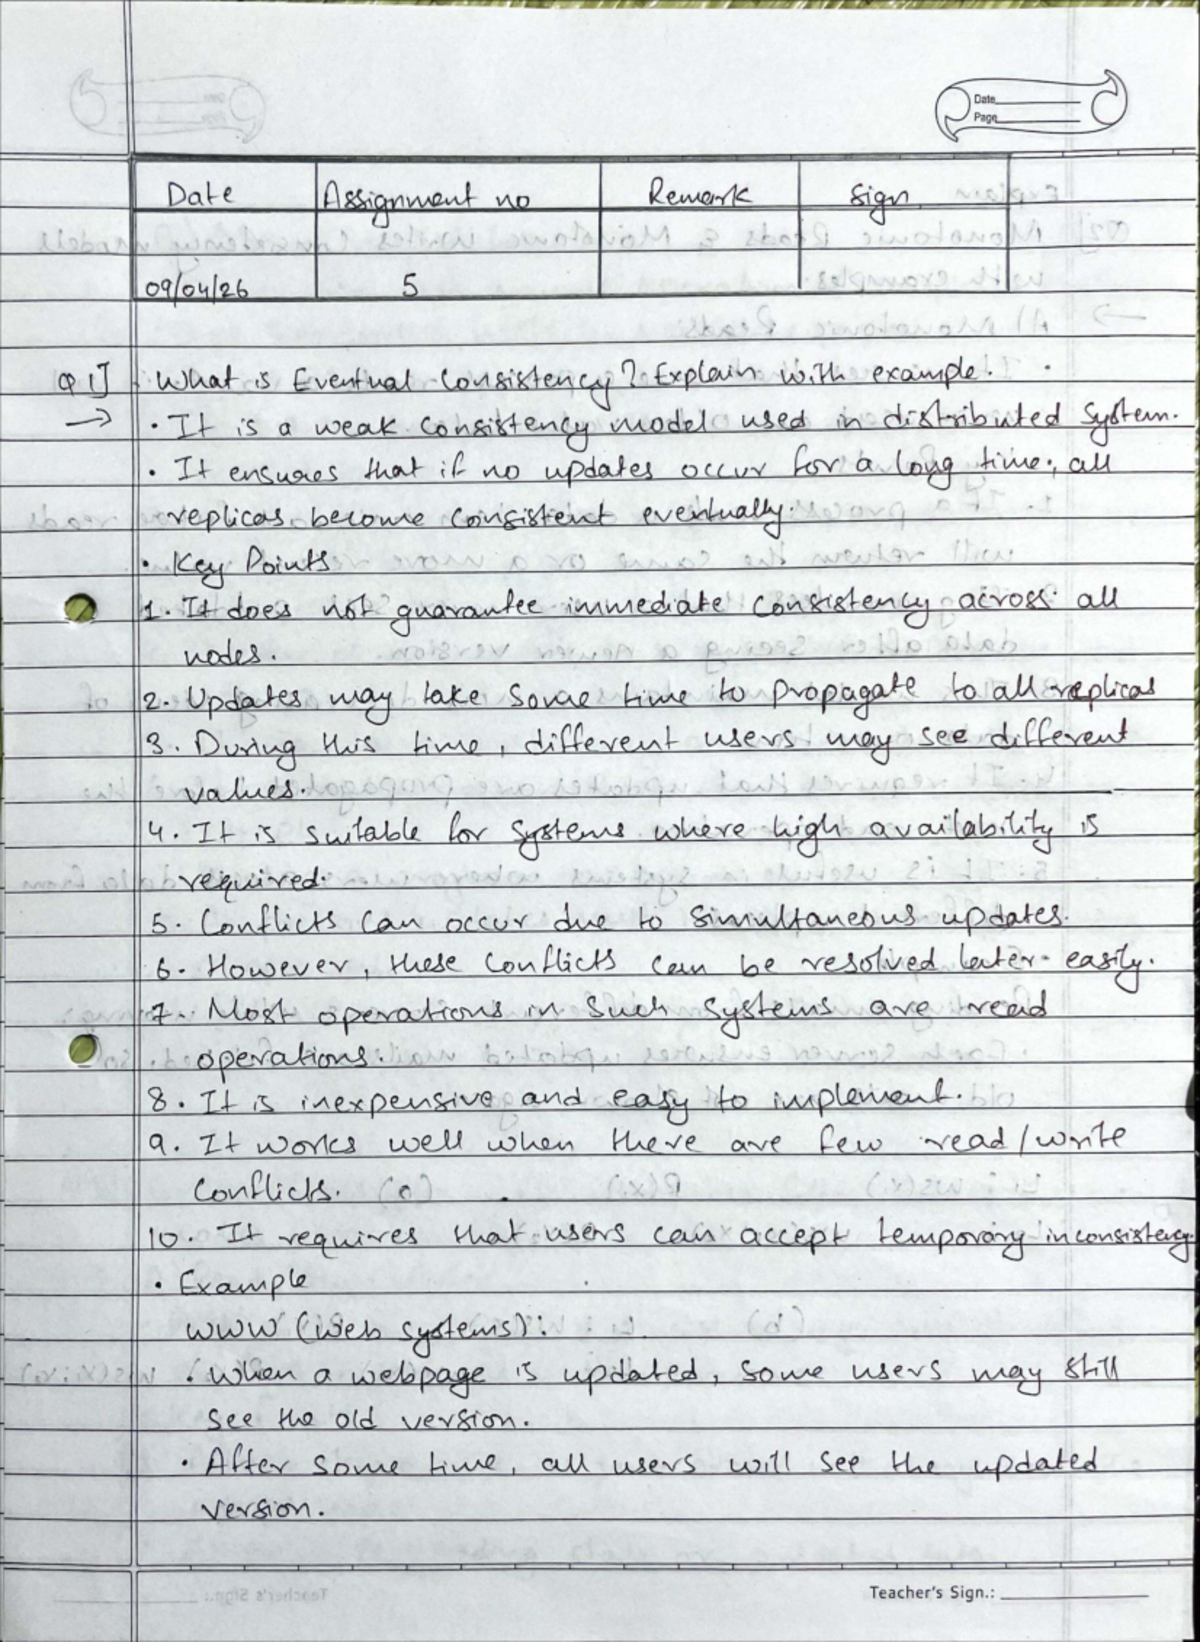 Date
Page
Date Assignment no Remark Sign
09/04/26 5
Q 1] What is Eventual Consistency? Explain with example.
→ • It is a weak consistency model used in distributed system.
• It ensures that if no updates occur for a long time, all
replicas become consistent eventually.
• Key Points
1. It does not guarantee immediate consistency across all
nodes.
2. Updates may take some time to propagate to all replicas
3. During this time, different users may see different
values.
4. It is suitable for systems where high availability is
required.
5. Conflicts can occur due to simultaneous updates.
6. However, these conflicts can be resolved later easily.
7. Most operations in such systems are read
operations.
8. It is inexpensive and easy to implement.
9. It works well when there are few read/write
conflicts.
10. It requires that users can accept temporary inconsistency.
• Example
WWW (Web systems):
• When a webpage is updated, some users may still
see the old version.
• After some time, all users will see the updated
version.
Teacher's Sign.: